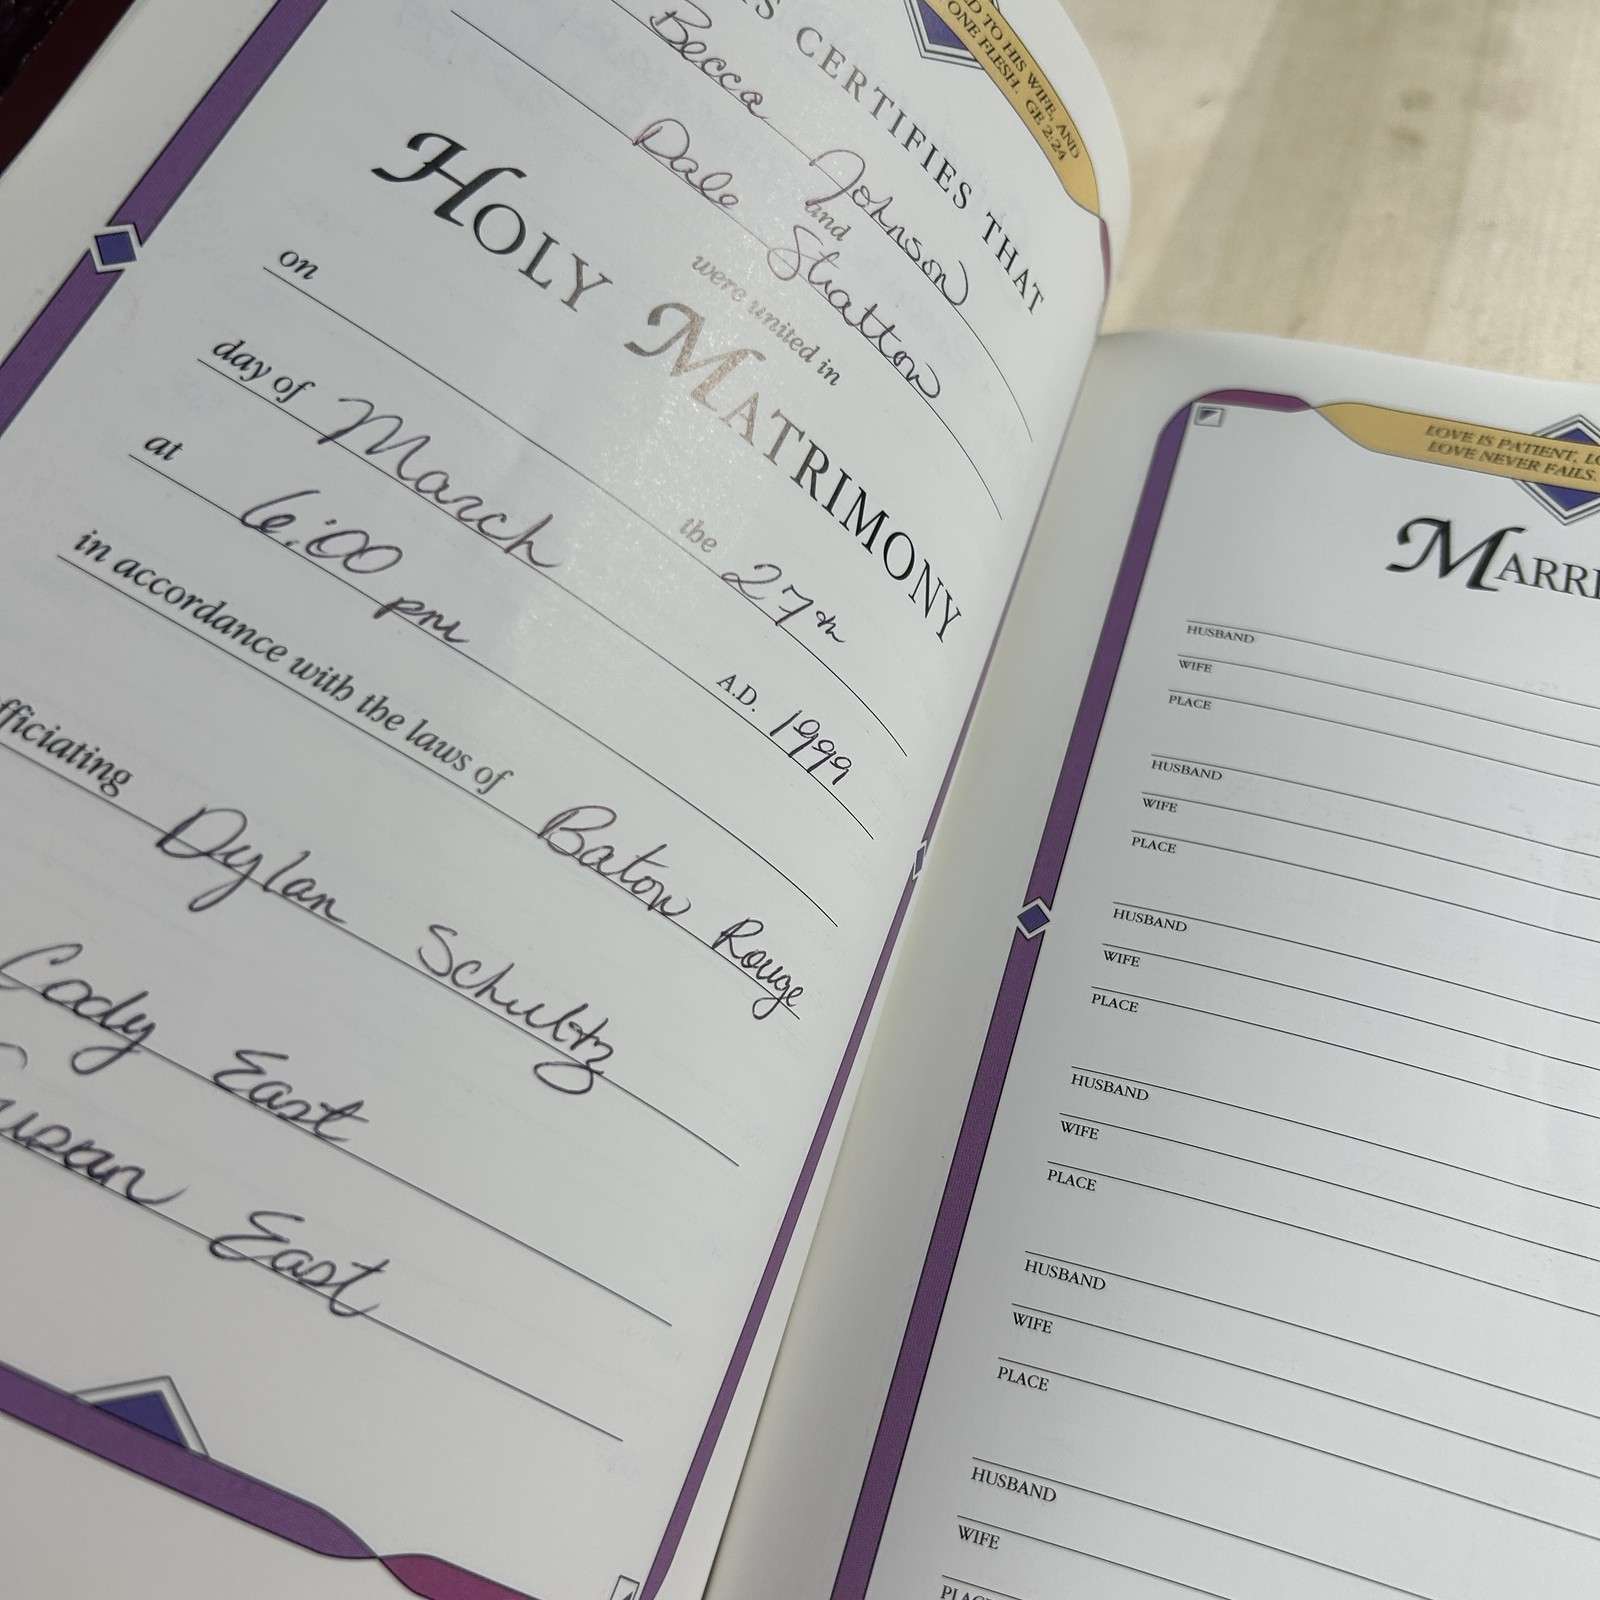 TO HIS WIFE, AND
ONE FLESH. GE 2:24
CERTIFIES THAT
Becca Johnson
and
Dale Stratton
were united in
HOLY MATRIMONY
on the 27th
day of March A.D. 1999
at 6:00 pm
in accordance with the laws of Baton Rouge
Dylan Schultz
Cody East
Susan East
LOVE IS PATIENT,
LOVE NEVER FAILS.
HUSBAND
WIFE
PLACE
HUSBAND
WIFE
PLACE
HUSBAND
WIFE
PLACE
HUSBAND
WIFE
PLACE
HUSBAND
WIFE
PLACE
HUSBAND
WIFE